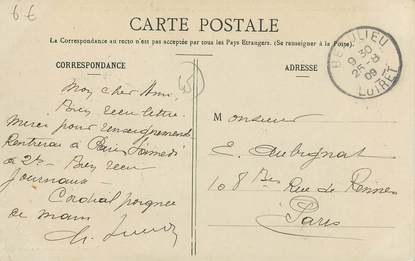 6 €
CARTE POSTALE
La Correspondance au recto n'est pas acceptée par tous les Pays Etrangers. (Se renseigner à la Poste)
CORRESPONDANCE
ADRESSE
45
BEAULIEU
9 30
25 -8
09
LOIRET
Mon cher Ami,
Bien reçu lettre.
Merci pour renseignements
Rentrerai à Paris Samedi
à 2h - Bien reçu
Journaux -
Cordial poignée
de main
Monsieur
E. Aubignat
108 Bis Rue de Rennes
Paris